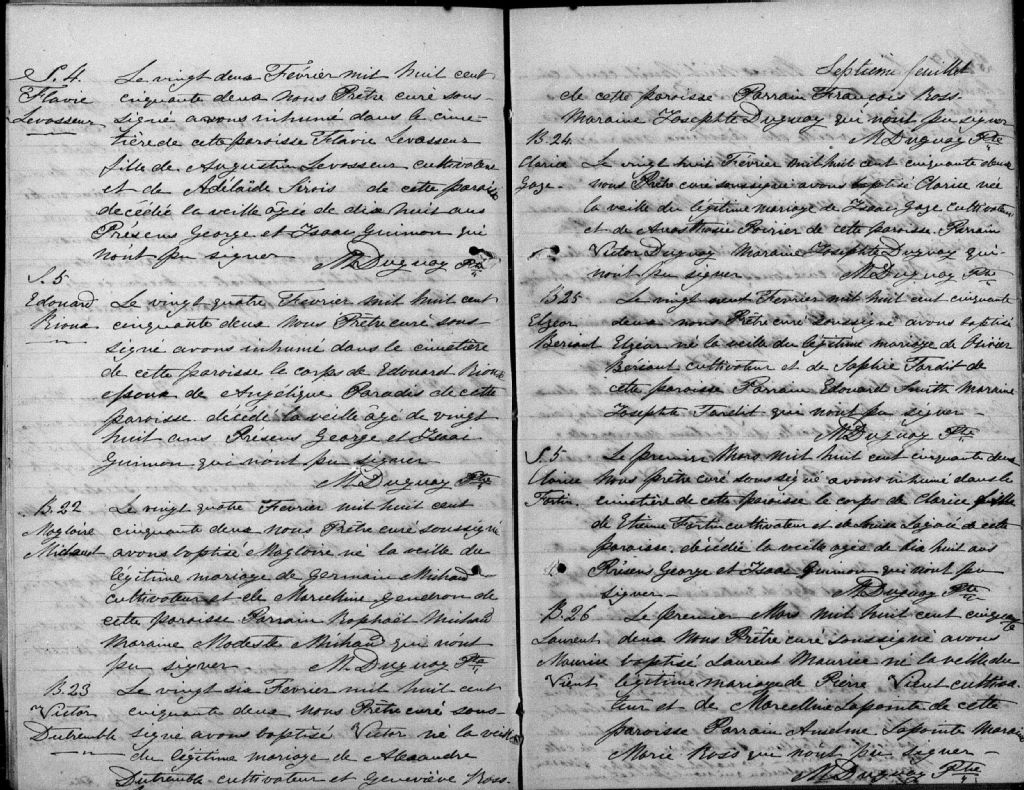 S. 4. Le vingt deux Février mil huit cent
Flavie cinquante deux nous Prêtre curé sous-
Levasseur signé avons inhumé dans le cime-
tière de cette paroisse Flavie Levasseur
fille de Augustin Levasseur cultivateur
et de Adélaide Sirois de cette paroisse
decédée la veille agée de dix huit ans
Présens George et Isaac Guimon qui
n'ont pu signer M. Duguay Ptre
S. 5
Edouard Le vingt quatre Fevrier mil huit cent
Rioux cinquante deux Nous Prêtre curé sous-
signé avons inhumé dans le cimetière
de cette paroisse le corps de Edouard Rioux
epoux de Angélique Paradis de cette
paroisse décédé la veille agé de vingt
huit ans Présens George et Isaac
Guimon qui n'ont pu signer
M. Duguay Ptre
B. 22 Le vingt quatre Fevrier mil huit cent
Magloire cinquante deux nous Prêtre curé soussigné
Michaud avons baptisé Magloire né la veille du
légitime mariage de Germain Mihaud
cultivateur et de Marcelline Gendron de
cette paroisse Parrain Raphaël Michaud
Maraine Modeste Mihaud qui n'ont
pu signer. M. Duguay Ptre
B. 23 Le vingt six Fevrier mil huit cent
Victor cinquante deux nous Prêtre curé sous-
Dutremble signé avons baptisé Victor né la veille
du légitime mariage de Alexandre
Dutremble cultivateur et Geneviève Ross.
Septieme feuillet
de cette paroisse Parrain François Ross
Maraine Josephte Duguay qui n'ont pu signer
B. 24. M. Duguay Ptre
Clarice Le vingt huit Fevrier mil huit cent cinquante deux
Gage. nous Prêtre curé soussigné avons baptisé Clarice née
la veille du légitime mariage de Isaac Gage cultivateur
et de Anas Marie Poirier de cette paroisse. Parrain
Victor Duguay Maraine Josephte Duguay qui
n'ont pu signer M. Duguay Ptre
B 25 Le vingt neuf Fevrier mil huit cent cinquante
Elzear deux nous Prêtre curé soussigné avons baptisé
Beriaut Elzéar né la veille du légitime mariage de Olivier
Bériaut cultivateur et de Sophie Tardit de
cette paroisse Parrain Edouard Smith Marraine
Josephte Tardit qui n'ont pu signer -
M. Duguay Ptre
S. 5 Le premier Mars mil huit cent cinquante deux
Clarice Nous prêtre curé soussigné avons inhumé dans le
Fortin cimetière de cette paroisse le corps de Clarice fille
de Etiene Fortin cultivateur et de Lagacé de cette
paroisse. décédée la veille agée de dix huit ans
Présens George et Isaac Guimon qui n'ont pu
signer - M. Duguay Ptre
B. 26 Le premier Mars mil huit cent cinquante
Laurent deux Nous Prêtre curé soussigné avons
Maurice baptisé Laurent Maurice né la veille du
Vient légitime mariage de Pierre Vient cultiva-
teur et de Marcelline Lapointe de cette
paroisse Parrain Anselme Lapointe Maraine
Marie Ross qui n'ont pu signer -
M. Duguay Ptre